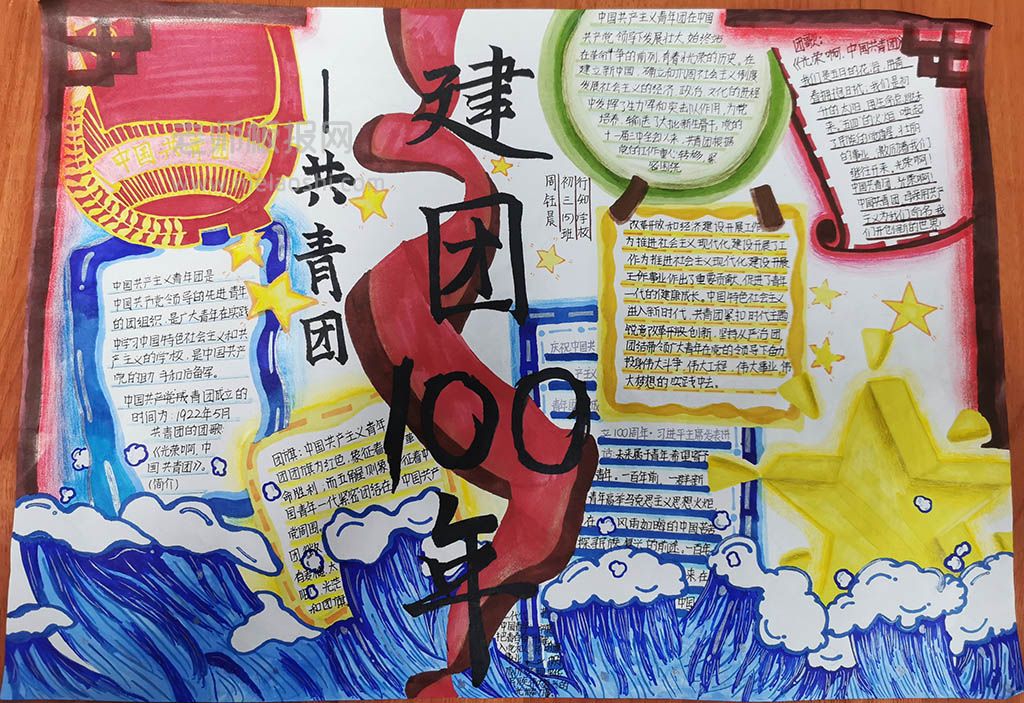 建团100年
—共青团
中国共青团
行知学校
初三(5)班
周钰晨
中国共产主义青年团是
中国共产党领导的先进青年
的团组织,是广大青年在实践
中学习中国特色社会主义和共
产主义的学校,是中国共产
党的助手和后备军。
中国共产党成青团成立的
时间为:1922年5月
共青团的团歌
《光荣啊,中
国共青团》。
(简介)
中国共产主义青年团在中国
共产党领导下发展壮大,始终站
在革命斗争的前列,有着光荣的历史。在
建立新中国,确立和巩固社会主义制度
发展社会主义的经济、政治、文化的进程
中发挥了生力军和突击队作用,为党
培养、输送了大批新生骨干。党的
十一届三中全会以来,共青团根据
党的工作重心转移,紧
密围绕
改革开放和经济建设开展工作
为推进社会主义现代化建设开展了工
作为推进社会主义现代化建设开展
工作事业作出了重要贡献,促进了青年
一代的健康成长。中国特色社会主义
进入新时代,共青团紧扣时代主题
锐意改革开放创新,坚持从严治团
团结带领广大青年在党的领导下奋力
投身伟大斗争、伟大工程、伟大事业、伟
大梦想的实践中去。
团歌:
《光荣啊,中国共青团》
我们是五月的花海,用青
春拥抱时代,我们是初
升的太阳,用生命点燃未
来,五四的火炬,唤起
了民族的觉醒,壮丽
的事业,激励着我们
继往开来,光荣啊!
中国共青团,光荣啊!
中国共青团,母亲用共产
主义为我们命名,我
们开创新的世界!
团旗:中国共产主义青年
团团旗为红色,象征着
命胜利;而五角星则象征着中
国青年一代紧密团结在中国共产
党周围。
庆祝中国共
产主义
青年团成
立100周年,习近平主席发表讲
未来属于青年,希望寄予
青年,一百年前,一群新
青年高举马克思主义思想火炬
在风雨如晦的中国苦苦
探寻民族复兴的前途。一百年
来,在